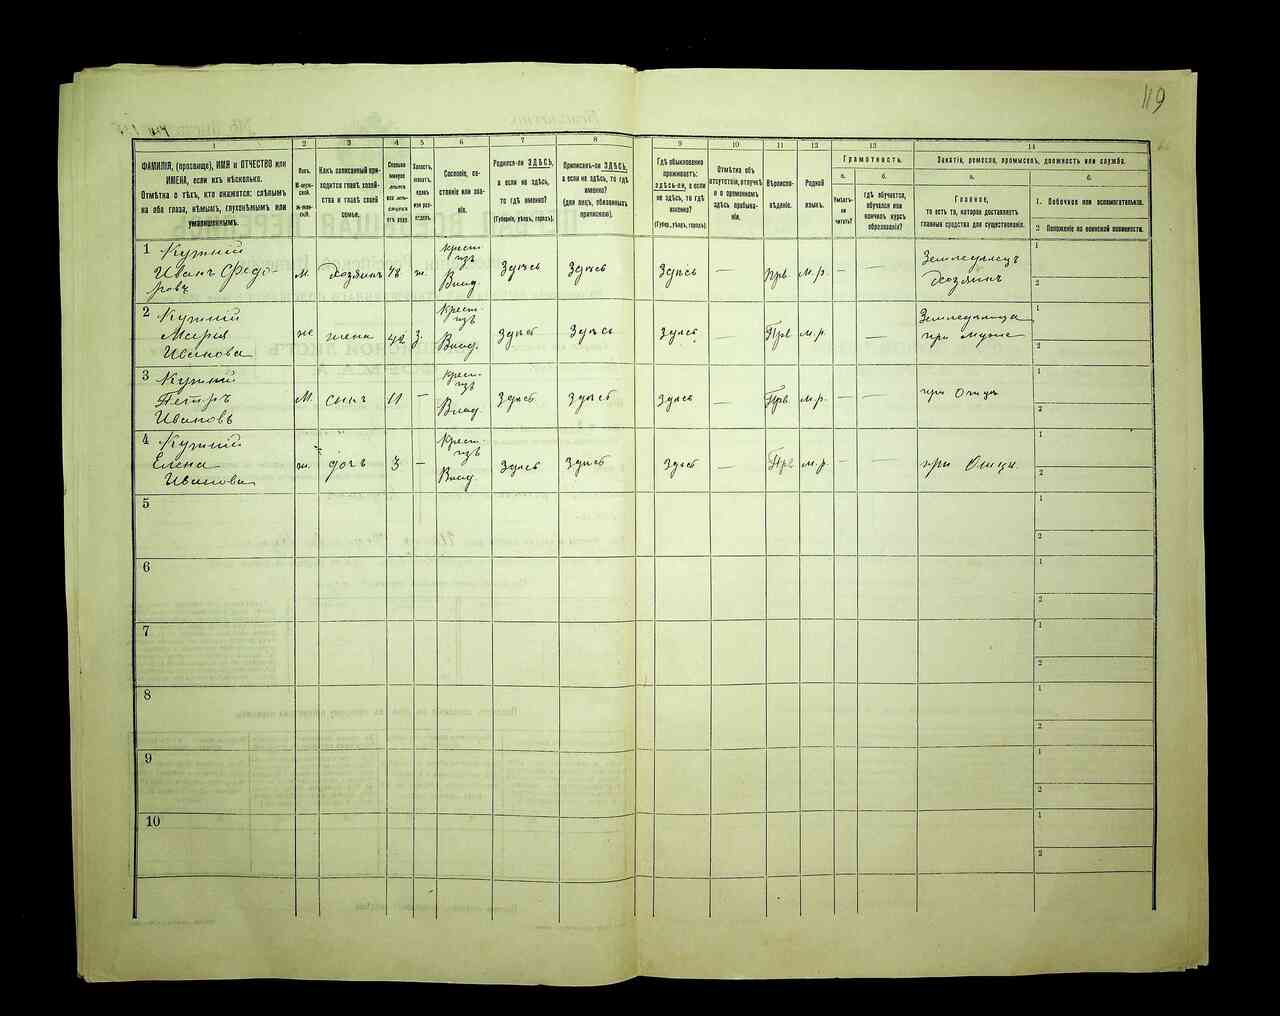 119
1
2
3
4
5
6
7
8
9
10
11
12
13
14
ФАМИЛІЯ, (прозвище), ИМЯ и ОТЧЕСТВО или
ИМЕНА, если ихъ нѣсколько.
Отмѣтка о тѣхъ, кто окажется: слѣпымъ
на оба глаза, нѣмымъ, глухонѣмымъ или
умалишеннымъ.
Полъ.
М-муж-
ской.
Ж-жен-
скій.
Какъ записанный при-
ходится главѣ хозяй-
ства и главѣ своей
семьи.
Сколько
минуло
лѣтъ
Холостъ,
женатъ,
вдовъ
или раз-
веденъ.
Сословіе, со-
стояніе или зва-
ніе.
Родился-ли ЗДѢСЬ,
а если не здѣсь,
то гдѣ именно?
(Губернія, уѣздъ, городъ).
Приписанъ-ли ЗДѢСЬ,
а если не здѣсь, то гдѣ
именно?
(для лицъ, обязанныхъ
припискою).
Гдѣ обыкновенно
проживаетъ:
здѣсь-ли, а если
не здѣсь, то гдѣ
именно?
(Губер., уѣздъ, городъ).
Отмѣтка объ
отсутствіи, отлучкѣ
и о временномъ
здѣсь пребыва-
ніи.
Вѣроиспо-
вѣданіе.
Родной
языкъ.
Грамотность.
а.
б.
Умѣетъ-
ли
читать?
гдѣ обучается,
обучался или
кончилъ курсъ
образованія?
Занятіе, ремесло, промыселъ, должность или служба.
а.
б.
Главное,
то есть то, которое доставляетъ
главныя средства для существованія.
1. Побочное или вспомогательное.
2 Положеніе по воинской повинности.
1 Кужній
Иванъ Федо-
ровъ
м. Хозяинъ 48 ж. крест- изъ Влад. Здѣсь Здѣсь Здѣсь — прв. м.р. — — Земледѣлецъ Хозяинъ
1
2
2 Кужній
Марія
Иванова
же жена 42 з. крест- изъ Влад. Здѣсь Здѣсь Здѣсь — Прв м.р. — — Земледѣлица при мужѣ
1
2
3 Кужній
Петръ
Ивановъ
М. сынъ 11 — крест- изъ Влад. Здѣсь Здѣсь Здѣсь — Прв. м.р. — — при Отцѣ
1
2
4 Кужній
Елена
Иванова
ж. дочь 3 — крест- изъ Влад. Здѣсь Здѣсь Здѣсь — Прв м.р. — — при Отцѣ.
1
2
5
1
2
6
1
2
7
1
2
8
1
2
9
1
2
10
1
2